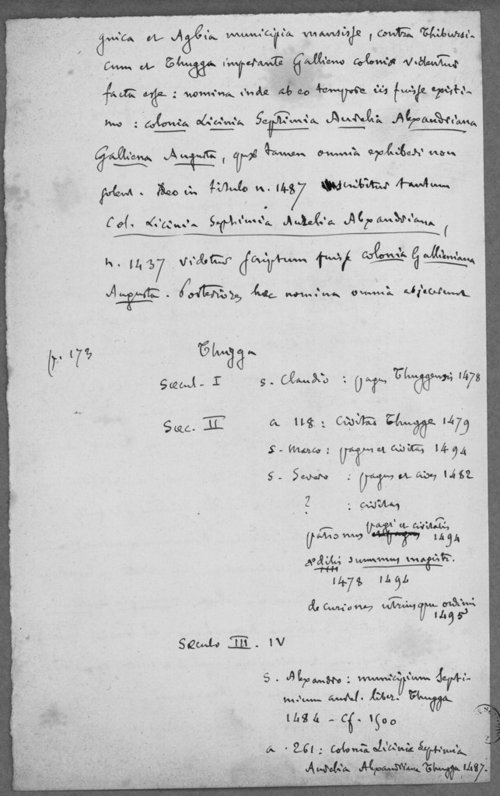 gnica et Agbia municipia mansisse, contra Thibursi-
cum et Thugga imperante Gallieno coloniæ videntur
factæ esse : nomina inde ab eo tempore iis fuisse existi-
mo : colonia Licinia Septimia Aurelia Alexandriana
Galliena Augusta, quæ tamen omnia exhiberi non
solent. Ideo in titulo n. 1487 scribitur tantum
Col. Licinia Septimia Aurelia Alexandriana,
n. 1437 videtur scriptum fuisse colonia Gallieniana
Augusta. Posteriores hæc nomina omnia abjecerunt
p. 173 Thugga
Sæcul. I s. Claudio : pagus Thuggensis 1478
Sæc. II a 118 : Civitas Thugge 1479
s. Marco : pagus et civitas 1494
s. Severo : pagus et cives 1482
? : civitas
patronus pagi et civitatis 1494
ædilis summus magistr.
1478 1494
decuriones utriusque ordinis
1495
Sæculo III. IV
s. Alexandro : municipium Septi-
mium aurel. liber. Thugga
1484 - cf. 1500
a. 261 : colonia Licinia Septimia
Aurelia Alexandriana Thugga 1487.